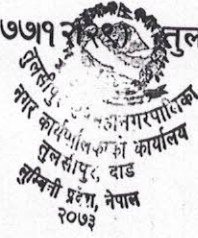 तुल
तुलसीपुर उपमहानगरपालिका
नगर कार्यपालिकाको कार्यालय
तुलसीपुर, दाङ
लुम्बिनी प्रदेश, नेपाल
२०७३